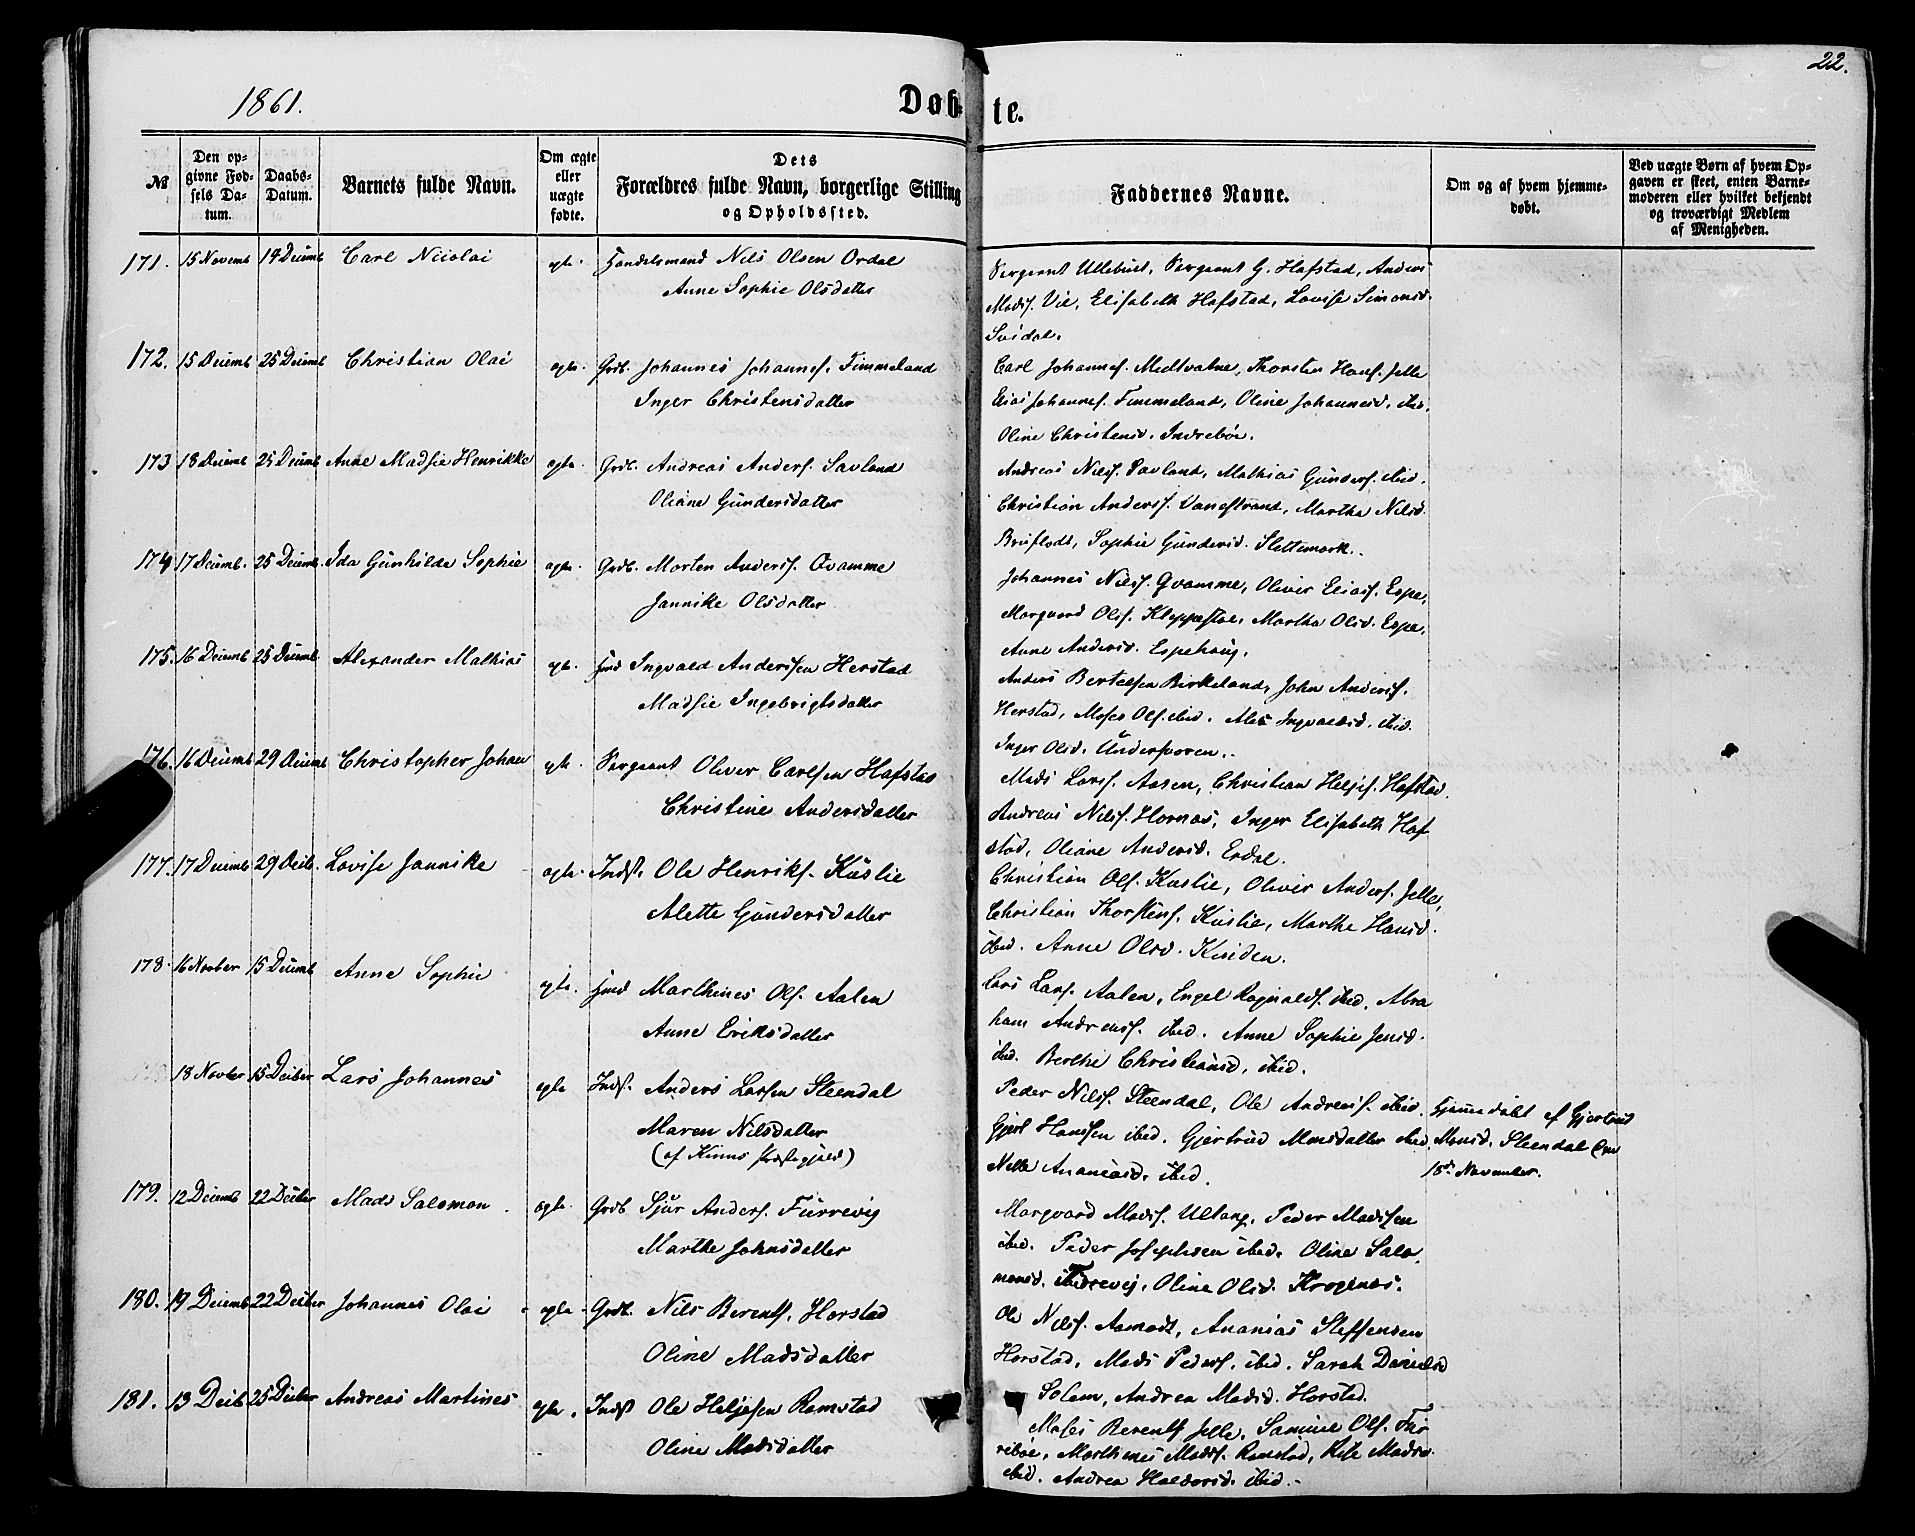 22.
1861.
Døbte.
№
Den opgivne Fødsels Datum.
Daabs-Datum.
Barnets fulde Navn.
Om ægte eller uægte fødte.
Dets Forældres fulde Navn, borgerlige Stilling og Opholdssted.
Faddernes Navne.
Om og af hvem hjemmedøbt.
Ved uægte Børn af hvem Opgaven er skeet, enten Barnemoderen eller hvilket bekjendt og troværdigt Medlem af Menigheden.
171. 15 Novemb 14 Decemb Carl Nicolai ægte. Handelsmand Nils Olsen Ordal
Anne Sophie Olsdatter
Sergeant Ullebust, Sergeant G. Hafstad, Anders
Mads. Vie, Elisabeth Hafstad, Lovise Simonsd.
Svidal.
172. 15 Decemb 25 Decemb Christian Olai ægte. Grdb. Johannes Johannes. Timmeland
Inger Christensdatter
Carl Johannes. Medtvatne, Thorsten Hans. Jelle
Elias Johannes. Timmeland, Oline Johannesd. ibid.
Oline Christensd. Indrebøe.
173 18 Decemb 25 Decemb Anne Madsie Henrikke ægte. Grdb. Andreas Anders. Savland
Oliane Gundersdatter
Andreas Nils. Savland, Mathias Gunders. ibid.
Christian Anders. Vonestrand, Martha Nilsd.
Bruflodt, Sophie Gundersd. Slettemark.
174 17 Decemb. 25 Decemb. Ida Gunhilde Sophie ægte. Grdb. Morten Anders. Qvamme
Jannike Olsdatter
Johannes Nils. Qvamme, Oliver Elias. Espe,
Marqvard Ols. Kleppestøe, Martha Olsd. Espe,
Anne Andersd. Espehaug.
175. 16 Decemb 25 Decemb Alexander Mathias ægte. Hmd Ingvald Anderssen Herstad
Madsie Ingebrigtsdatter
Anders Bertelsen Birkeland, John Anders.
Herstad, Moses Ols. ibid. Ales Ingvaldsd. ibid.
Inger Olsd.
176. 16 Decemb 29 Decemb Christopher Johan ægte. Sergeant Oliver Carlsen Hafstad
Christine Andersdatter
Mads Lars. Aasen, Christian Heljes. Hafstad.
Andreas Nils. Hornas, Inger Elisabeth Haf
stad, Oliane Andersd. Erdal.
177. 17 Decemb 29 Decb. Lovise Jannike ægte. Indst. Ole Henriks. Kuslie
Alette Gundersdatter
Christian Ols. Kuslie, Oliver Anders. Jelle,
Christian Thorstens. Kuslie, Marthe Hansd.
ibid. Anne Olsd.
178. 16 Novber 15 Decemb Anne Sophie ægte. Hmd Marthines Ols. Aalen
Anne Eriksdatter
Lars Lars. Aalen, Engel Ragnalds. ibid, Abra
ham Andreas. ibid. Anne Sophie Jensd.
ibid. Berthe Christiansd, ibid.
18 Novber 15 Decber Lars Johannes ægte Indst. Anders Larsen Steendal
Maren Nilsdatter
(af Kinns Præstegjæld)
Peder Nils. Steendal, Ole Andreas. ibid. Hjemmedøbt af Gjertrud
Gjert Hanssen ibed. Gjertrud Monsdatter ibid. Monsd. Steendal den
Nille Ananiasd. ibid. 18de November.
179. 12 Decemb 22 Decber Mads Salomon ægte. Grdb Sjur Anders. Furrevig
Marthe Johnsdatter
Marqvard Mads. Ullang, Peder Madssen
ibid. Peder Josephsen ibid. Oline Salo
monsd. Furrevig, Oline Olsd. Krogenæs.
180. 19 Decemb 22 Decber Johannes Olai ægte Grdb. Nils Berents. Horstad
Oline Madsdatter
Ole Nils. Aamodt, Ananias Steffensen
Horstad, Mads Peders. ibid. Sarah Danielsd
Solem, Andrea Madsd. Horstad.
181. 13 Decb 25 Decber Andreas Martines ægte. Indst Ole Heljesen Ramstad
Oline Madsdatter
Moses Berents Jelle, Samuel Ols. Fur
rebøe, Marthines Mads. Ramstad, Madsd.
ibid. Andrea Haldorsd. ibid.